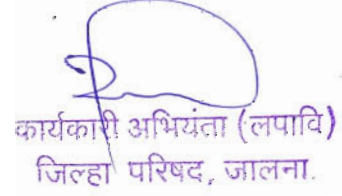 कार्यकारी अभियंता (लपावि)
जिल्हा परिषद, जालना.